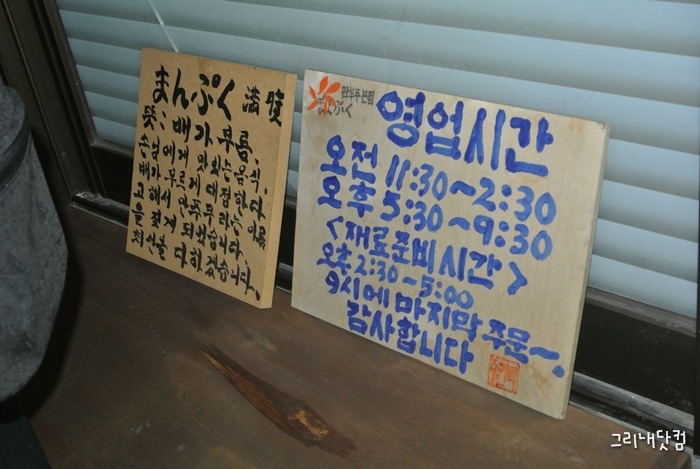 まんぷく 満腹
뜻: 배가 부름.
손님에게 맛있는 음식,
배가 부르게 대접한다.
고 해서 만뿌쿠라는 이름
을 짓게 되었습니다.
최선을 다하겠습니다.
まんぷく
영업시간
오전 11:30~2:30
오후 5:30~9:30
<재료준비시간>
오후 2:30~5:00
9시에 마지막 주문~.
감사합니다
그리내닷컴